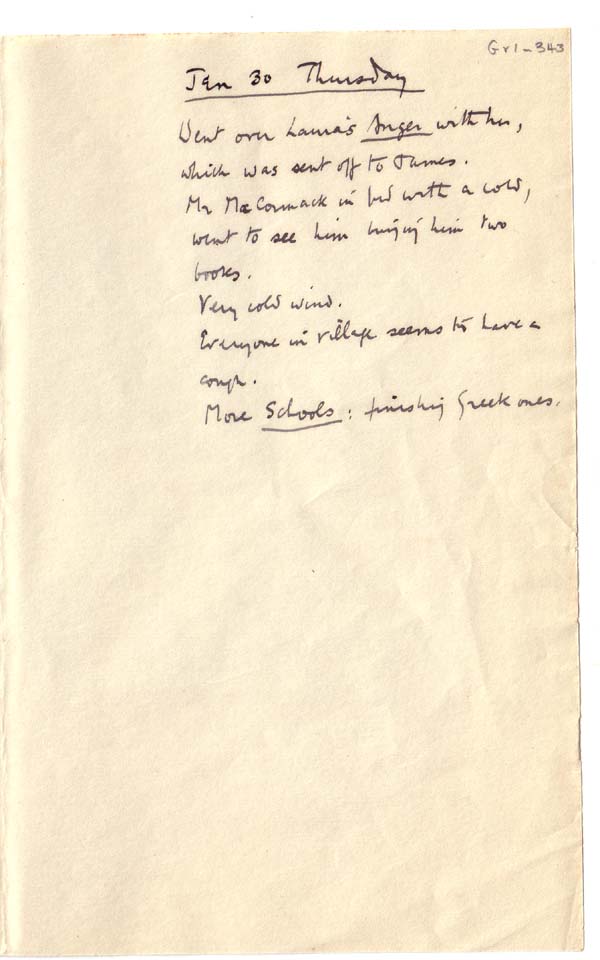 Gr1-343
Jan 30 Thursday
Went over Laura's Anger with her,
which was sent off to James.
Mr MacCormack in bed with a cold,
went to see him buying him two
books.
Very cold wind.
Everyone in village seems to have a
cough.
More Schools: finishing Greek ones.